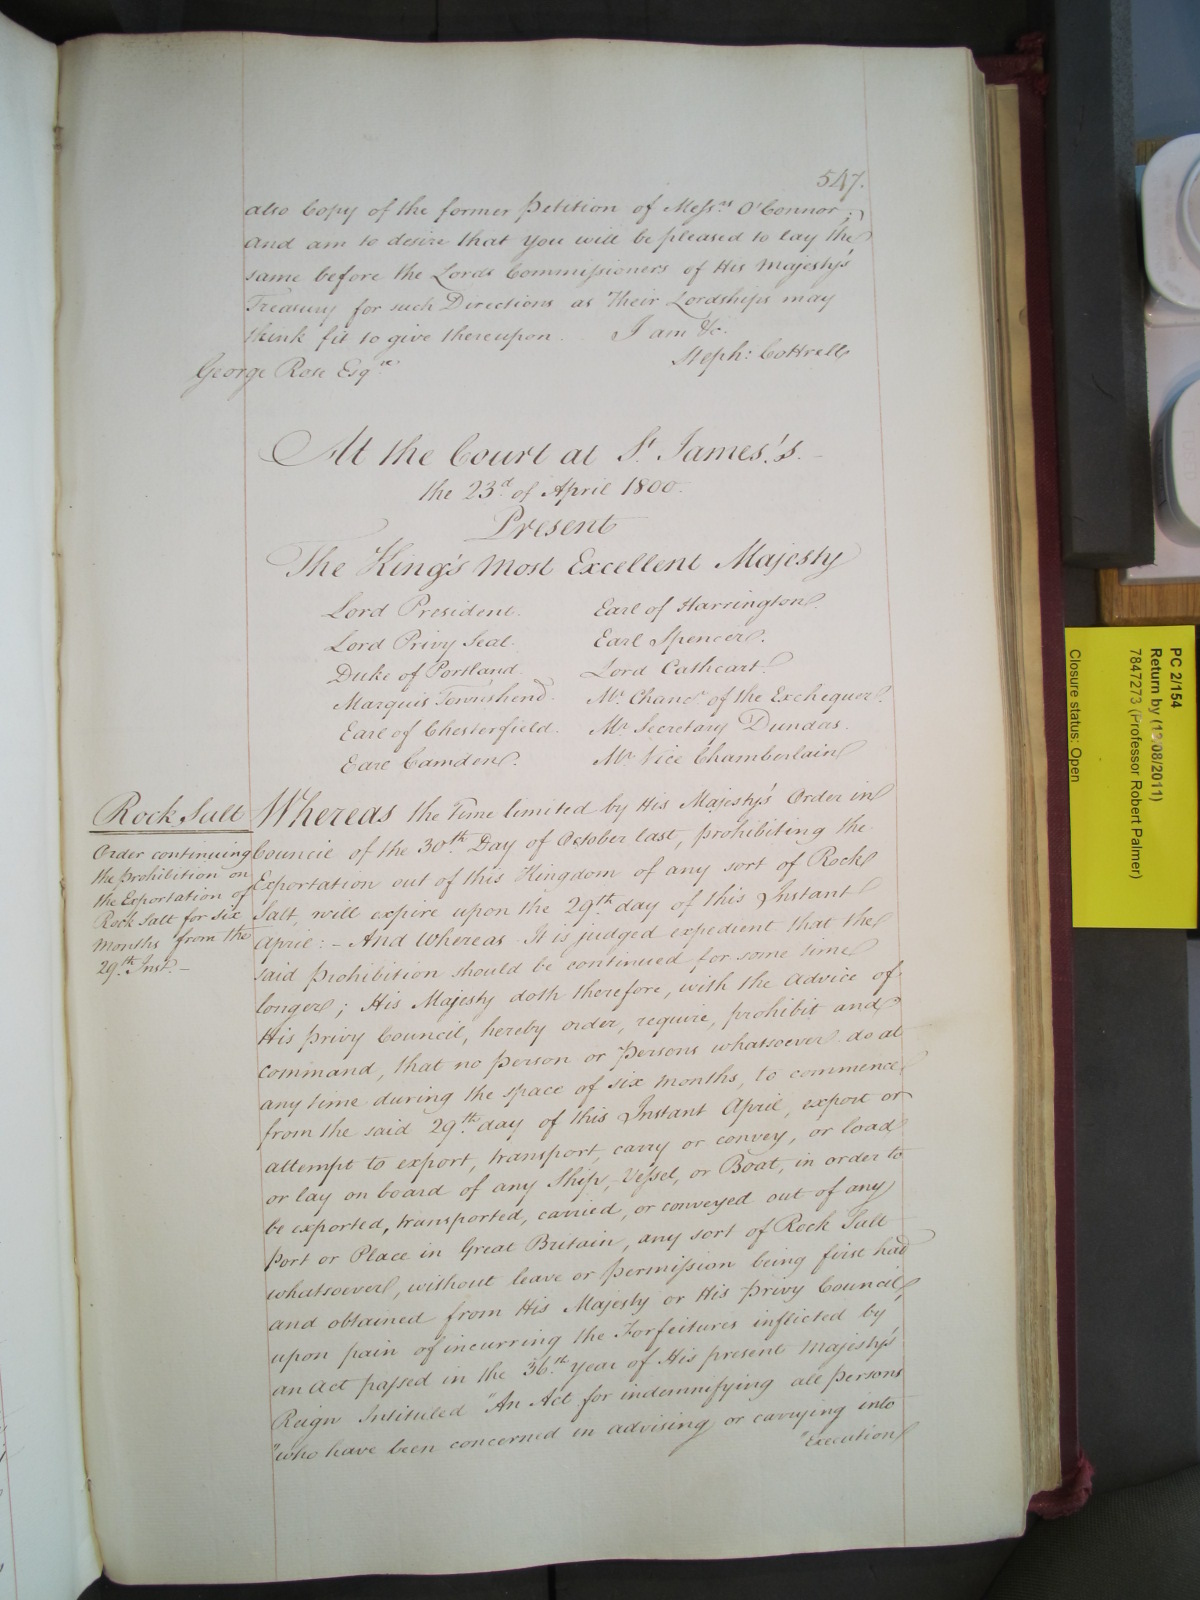 547.
also Copy of the former Petition of Messrs O'Connor;
and am to desire that you will be pleased to lay the
same before the Lords Commissioners of His Majesty's
Treasury for such Directions as Their Lordships may
think fit to give thereupon. I am &c.
Steph: Cottrell
George Rose Esqre
At the Court at St James's.
the 23d of April 1800.
Present
The King's Most Excellent Majesty
Lord President. Earl of Harrington.
Lord Privy Seal. Earl Spencer.
Duke of Portland. Lord Cathcart.
Marquis Townshend. Mr Chancr of the Exchequer.
Earl of Chesterfield. Mr Secretary Dundas.
Earl Camden. Mr Vice Chamberlain
Rock Salt
Order continuing
the Prohibition on
the Exportation of
Rock Salt for six
Months from the
29th Inst. –
Whereas the Time limited by His Majesty's Order in
Council of the 30th Day of October last, prohibiting the
Exportation out of this Kingdom of any sort of Rock
Salt, will expire upon the 29th day of this Instant
April: – And Whereas It is judged expedient that the
said Prohibition should be continued for some time
longer; His Majesty doth therefore, with the Advice of
His Privy Council, hereby order, require, prohibit and
command, that no Person or Persons whatsoever do at
any time during the space of six Months, to commence
from the said 29th day of this Instant April, export or
attempt to export, transport, carry or convey, or load
or lay on board of any Ship, Vessel, or Boat, in order to
be exported, transported, carried, or conveyed out of any
Port or Place in Great Britain, any sort of Rock Salt
whatsoever, without leave or Permission being first had
and obtained from His Majesty or His Privy Council,
upon pain of incurring the Forfeitures inflicted by
an Act passed in the 36th year of His present Majesty's
Reign Intituled "An Act for indemnifying all Persons
"who have been concerned in advising or carrying into
"Execution
PC 2/154
Return by (1 /08/2011)
7847273 (Professor Robert Palmer)
Closure status: Open